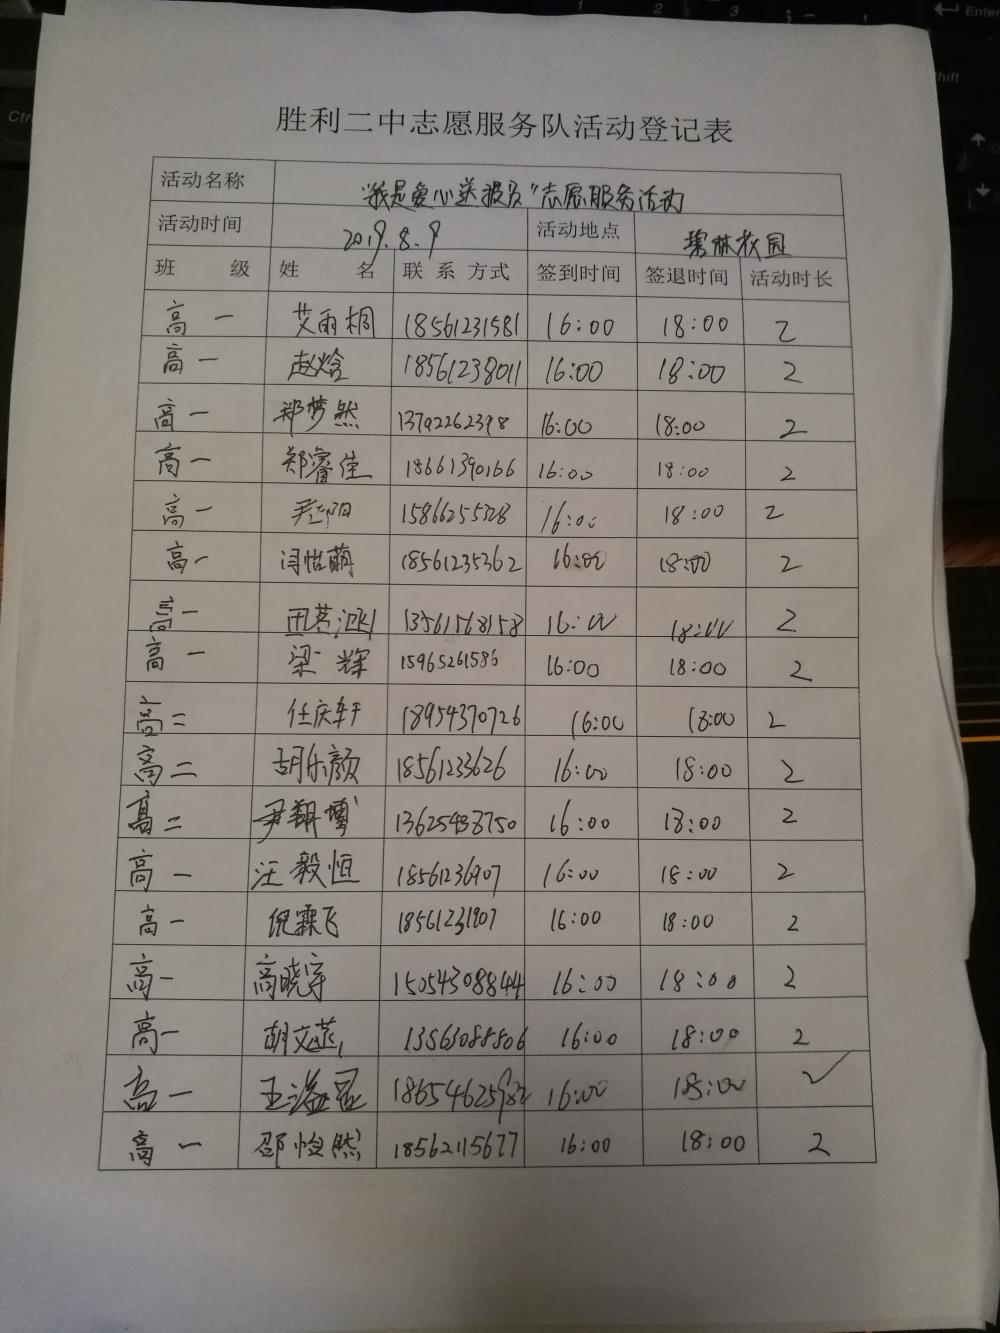 胜利二中志愿服务队活动登记表
活动名称 "我是爱心送报员"志愿服务活动
活动时间 2019.8.9 活动地点 碧林花园
班 级 姓 名 联 系 方式 签到时间 签退时间 活动时长
高一 艾雨桐 18561231581 16:00 18:00 2
高一 赵焓 18561238011 16:00 18:00 2
高一 郑梦然 13792262398 16:00 18:00 2
高一 郑睿佳 18661390166 16:00 18:00 2
高一 15866255328 16:00 18:00 2
高一 闫怡萌 18561235362 16:00 18:00 2
高一 13561568158 16:00 18:00 2
高一 梁辉 15965261586 16:00 18:00 2
高二 任庆轩 18954370726 16:00 18:00 2
高二 胡乐颜 18561233626 16:00 18:00 2
高二 尹翔博 13625438750 16:00 18:00 2
高一 汪毅恒 18561236907 16:00 18:00 2
高一 倪霖飞 18561231907 16:00 18:00 2
高一 高晓宇 15054308844 16:00 18:00 2
高一 胡文燕 13563088806 16:00 18:00 2
高一 16:00 18:00 ✓
高一 邵怡然 18562115677 16:00 18:00 2